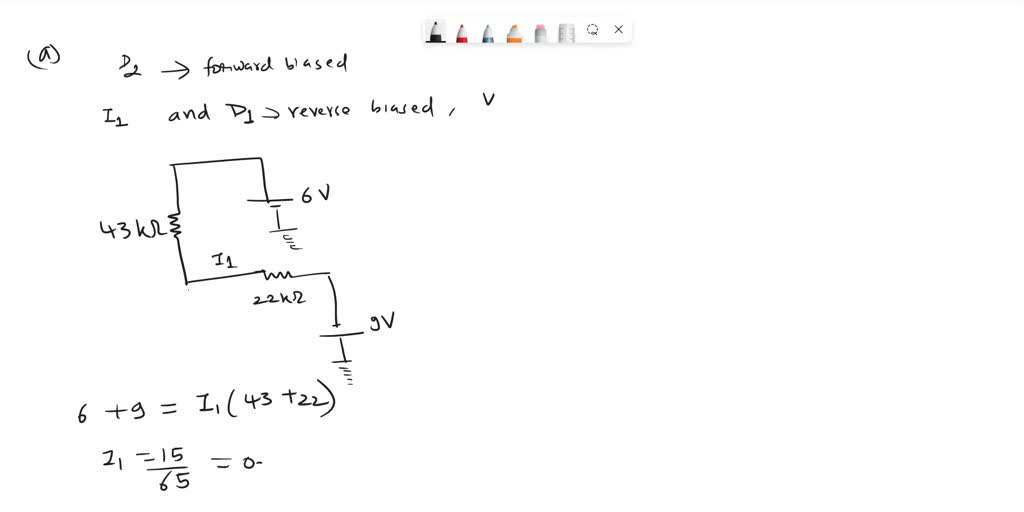 (a) D2 → forward biased
I1 and D1 → reverse biased, V
6V
43kΩ
I1
22kΩ
9V
6 + 9 = I1(43 + 22)
I1 = 15/65 = 0.